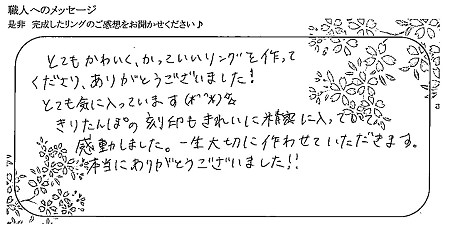 職人へのメッセージ
是非 完成したリングのご感想をお聞かせください♪
とてもかわいく、かっていいリングを作って
くださり、ありがとうございました!
とても気に入っています(*^^*)
きりたんぽの刻印もきれいに 入って
感動しました。一生大切に作わせていただきます。
本当にありがとうございました!!